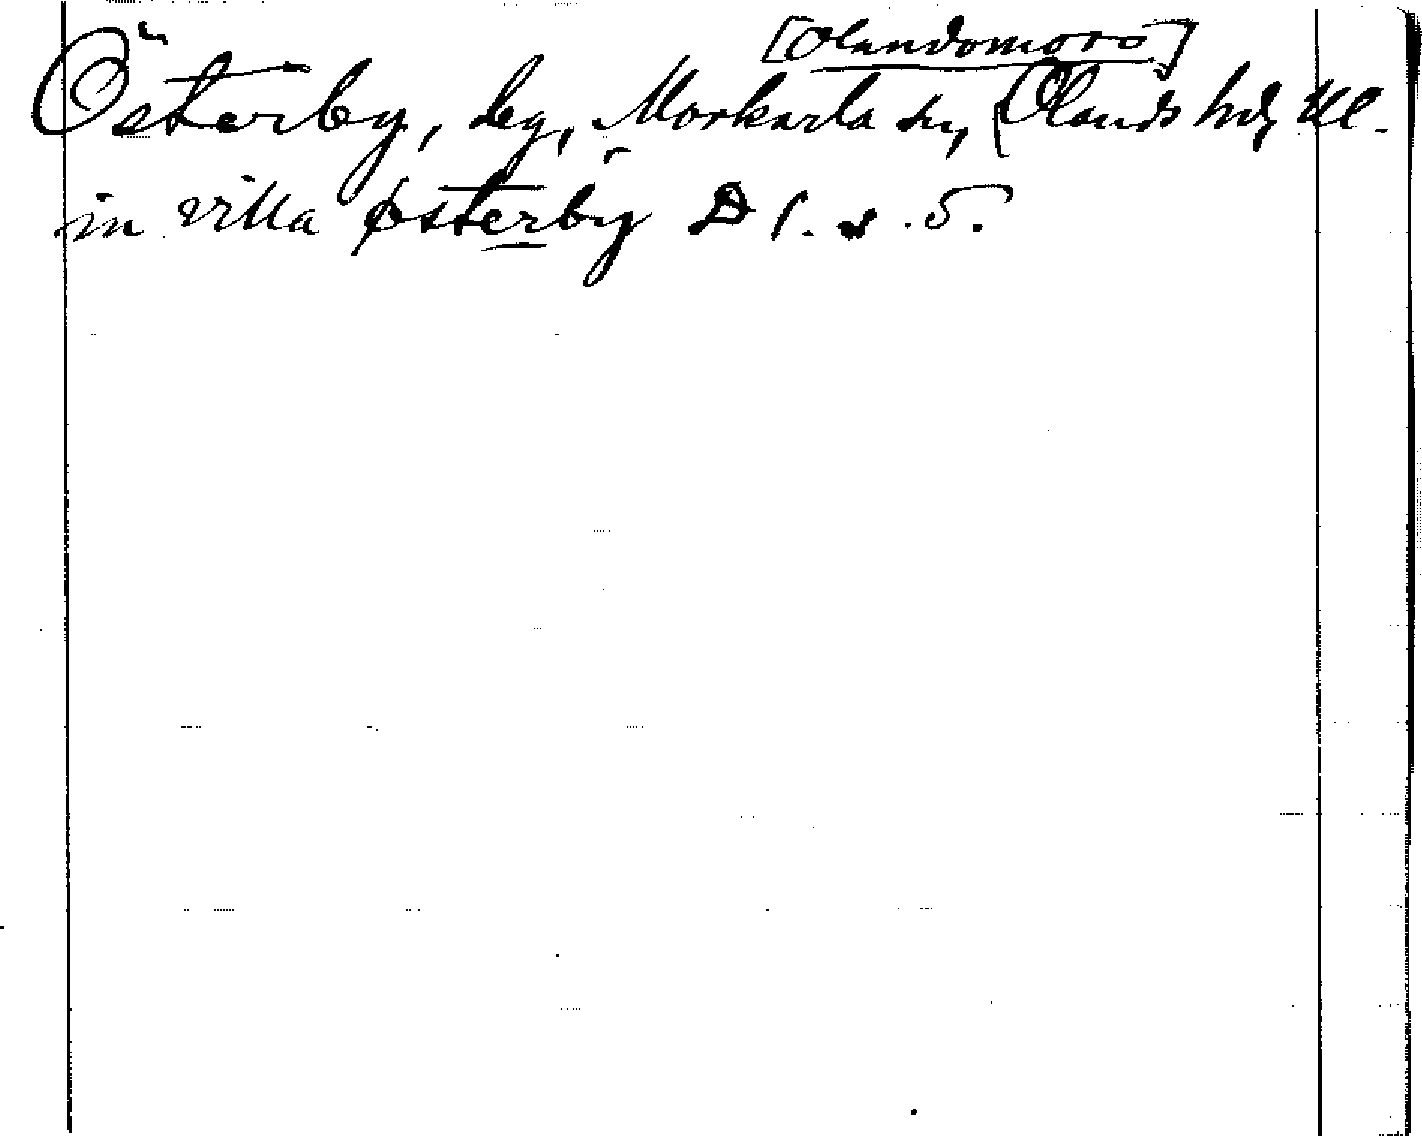 [Olandomoro]
Österby, by, Morkarla sn, (Olands hd, Upl.
in villa Østerby D 1. s. 5.